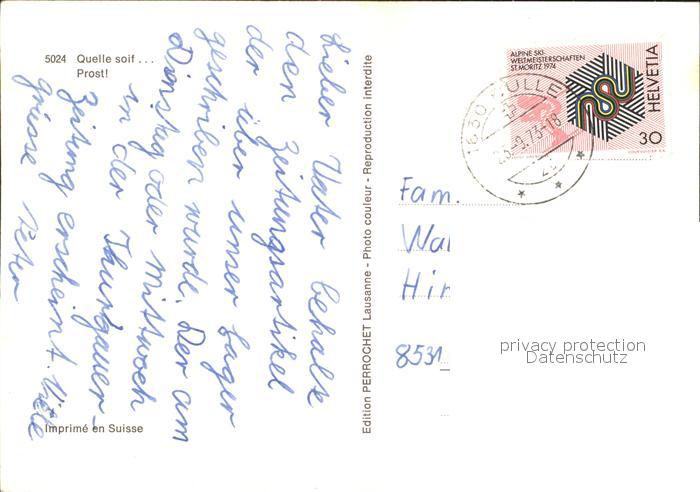 5024 Quelle soif . . .
Prost!
Lieber Vater behalte
den Zeitungsartikel
der über unser Lager
geschriben wurde. Der am
Dienstag oder Mittwoch
in der Thurgauer-
Zeitung erscheint. Viele
grüsse Peter
Imprimé en Suisse
Edition PERROCHET Lausanne - Photo couleur - Reproduction interdite
ALPINE SKI-
WELTMEISTERSCHAFTEN
ST. MORITZ 1974
HELVETIA
30
1630 BULLE
Fam.
Wal
Hir
8531
privacy protection
Datenschutz